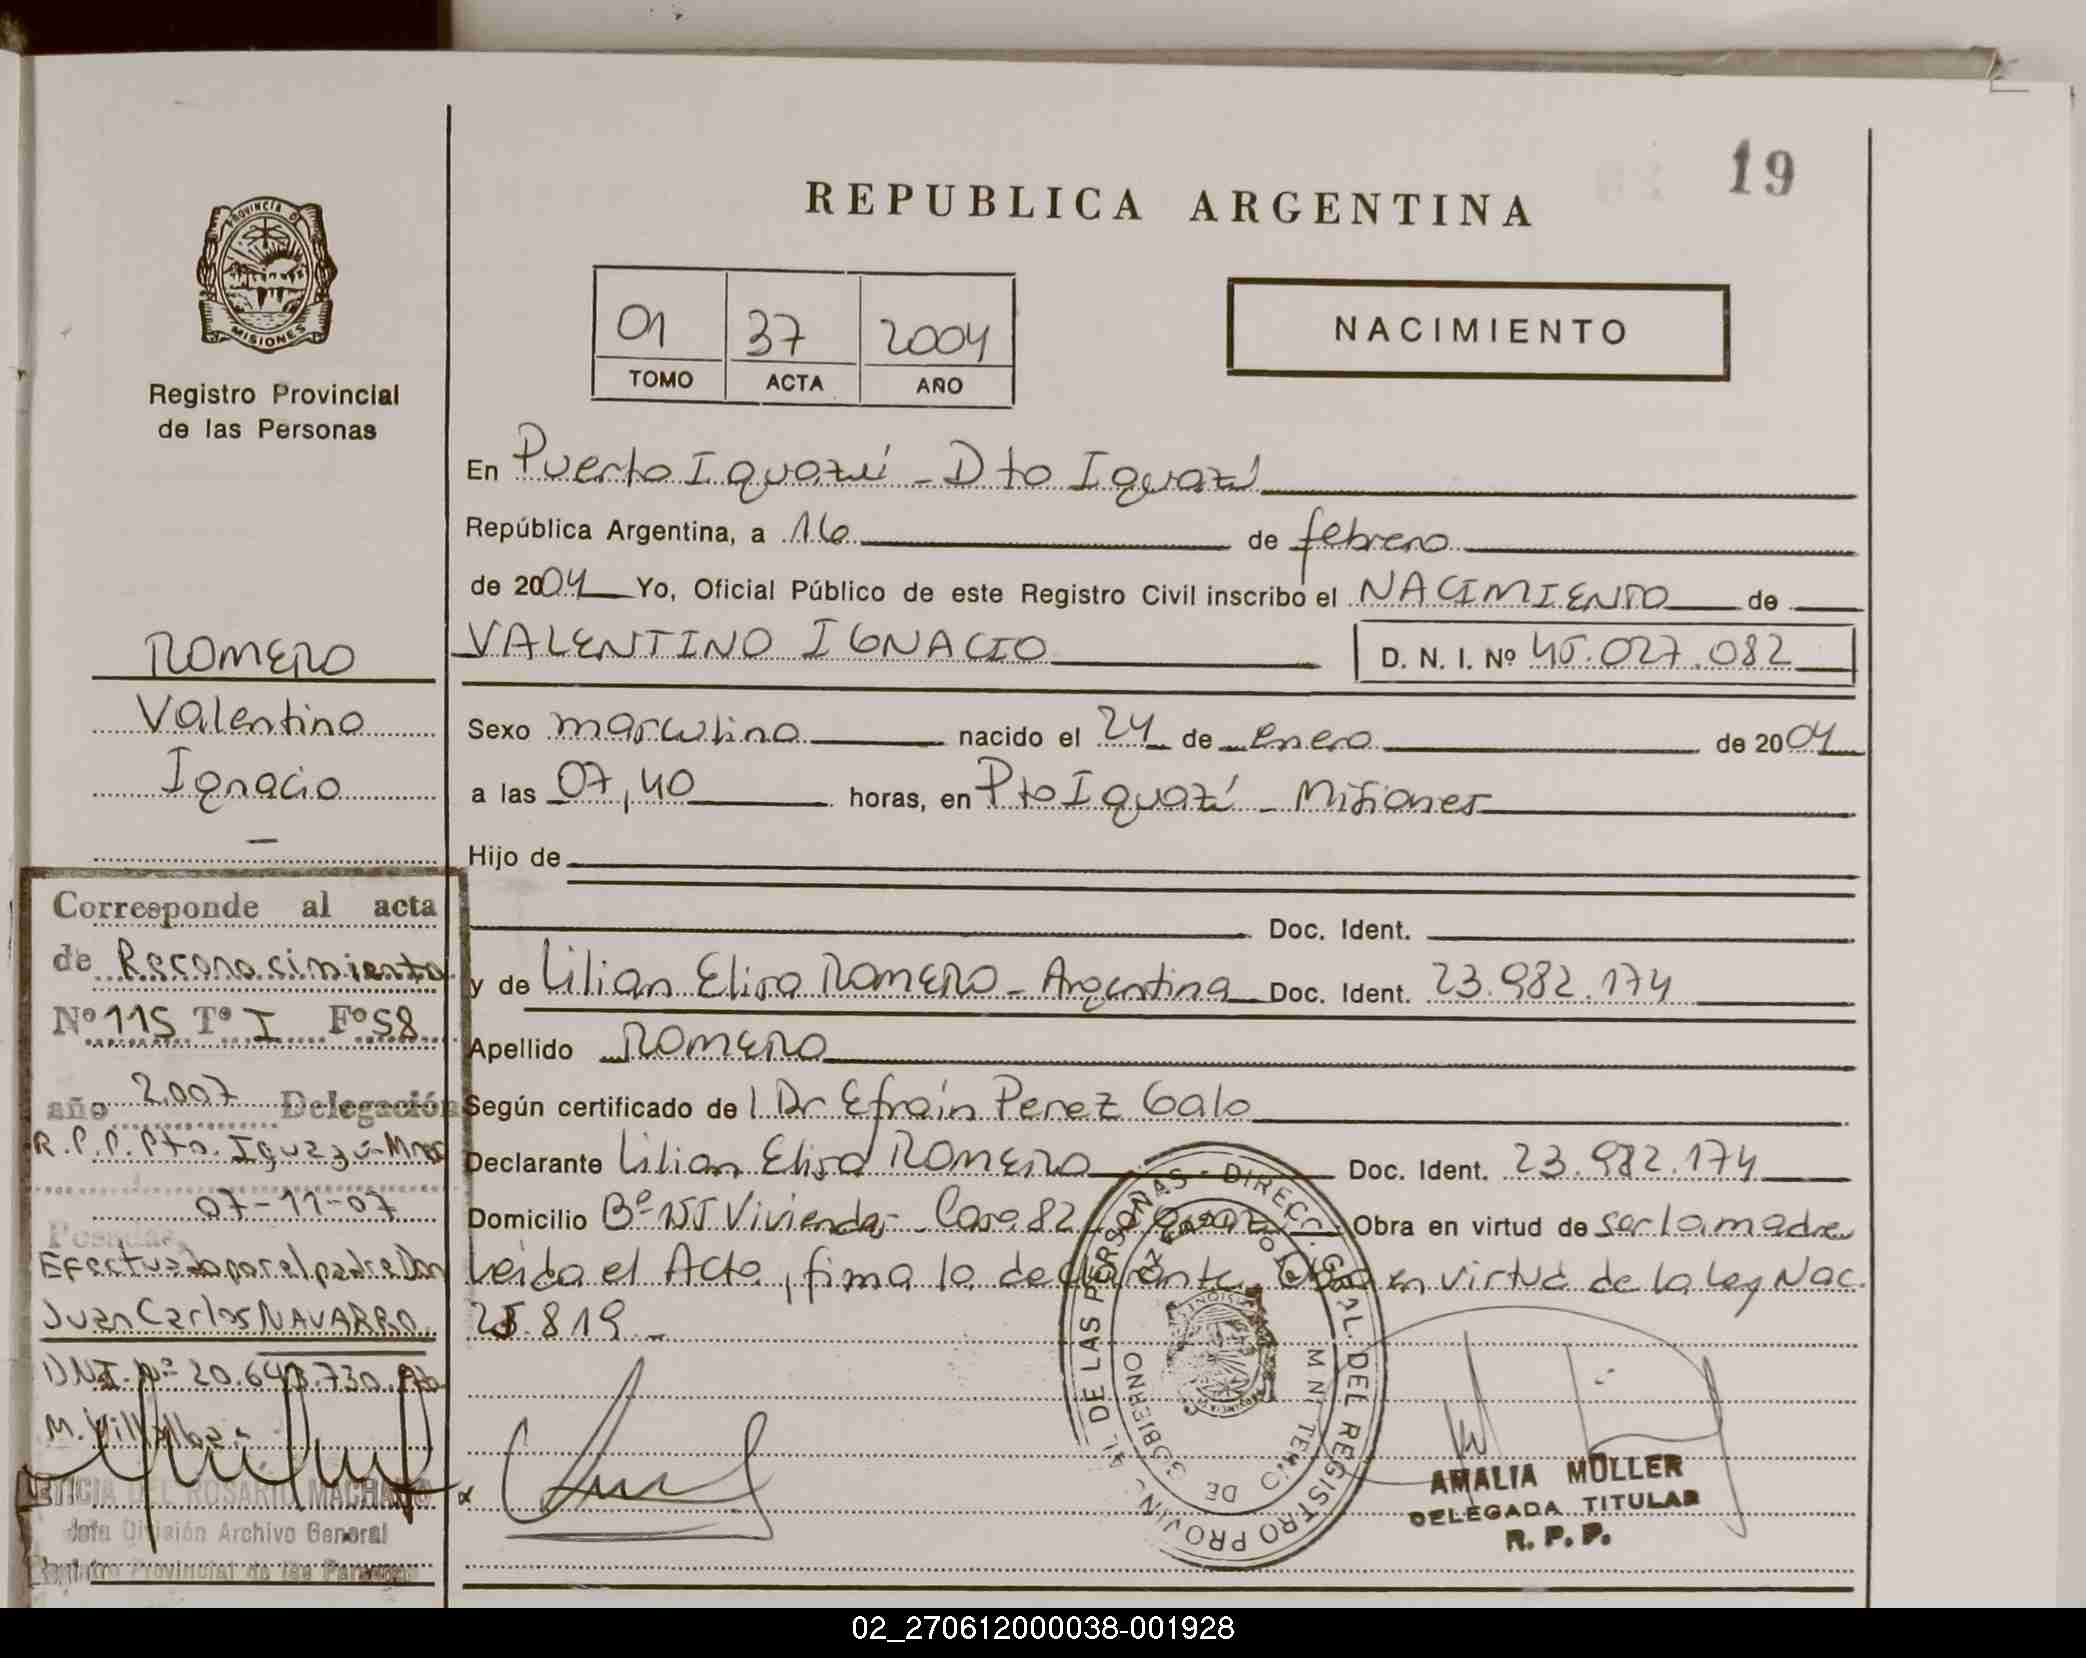 19
REPUBLICA ARGENTINA
PROVINCIA D
MISIONES
Registro Provincial
de las Personas
01 37 2004
TOMO ACTA AÑO
NACIMIENTO
En Puerto Iguazú - Dto Iguazú
República Argentina, a 16 de febrero
de 2004 Yo, Oficial Público de este Registro Civil inscribo el NACIMIENTO de
VALENTINO IGNACIO D. N. I. Nº 45.027.082
Sexo masculino nacido el 24 de enero de 2004
a las 07,40 horas, en Pto Iguazú - Misiones
Hijo de
Doc. Ident.
y de Lilian Elisa ROMERO - Argentina Doc. Ident. 23.982.174
Apellido ROMERO
Según certificado de l Dr Efraín Perez Galo
Declarante Lilian Elisa ROMERO Doc. Ident. 23.982.174
Domicilio Bº Viviendas - Casa 82 - Obra en virtud de ser la madre
Leída el Acta, firma la declarante. en virtud de la Ley Nac.
25.819 -
ROMERO
Valentino
Ignacio
-
Corresponde al acta
de Reconocimiento
Nº 115 Tº I Fº 58
año 2.007 Delegación
R.P.P. Pto. Iguazú - Mnes
07-11-07
Posadas,
Efectuado por el padre Don
Juan Carlos NAVARRO
DNI. Nº 20.643.730.
M. Villalba.
LETICIA DEL ROSARIO MACHADO
Jefa División Archivo General
Registro Provincial de las Personas
DIRECC. GRAL. DEL REGISTRO PROVINCIAL DE LAS PERSONAS
DE GOBIERNO
AMALIA MÜLLER
DELEGADA TITULAR
R. P. P.
02_270612000038-001928